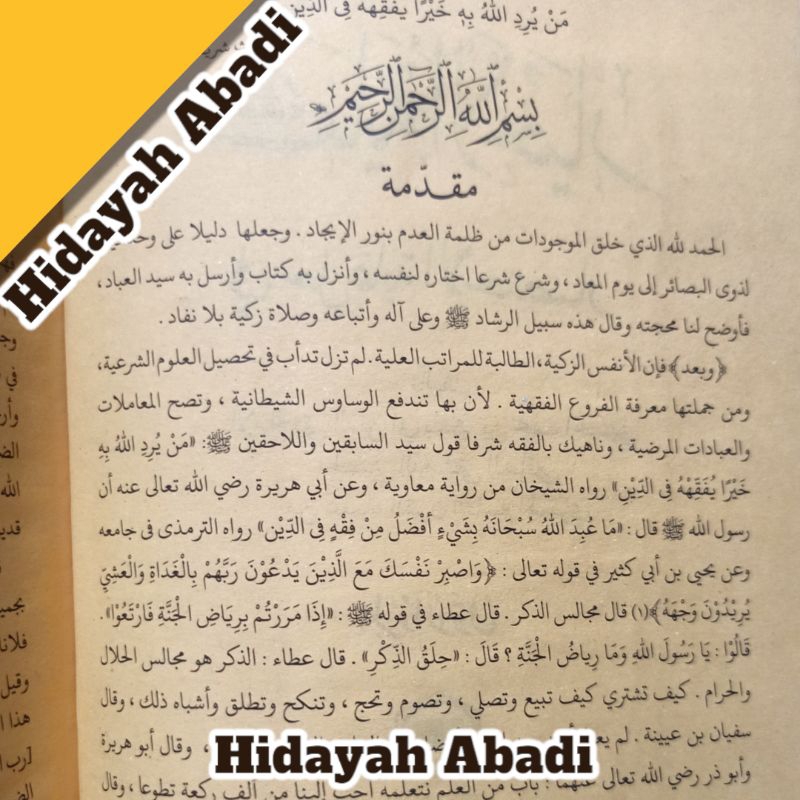 مَنْ يُرِدِ اللهُ بِهِ خَيْرًا يُفَقِّهْهُ فِى الدِّيْنِ
Hidayah Abadi
بِسْمِ اللهِ الرَّحْمٰنِ الرَّحِيْمِ
مقدّمة
الحمد لله الذي خلق الموجودات من ظلمة العدم بنور الإيجاد . وجعلها دليلا على
لذوى البصائر إلى يوم المعاد ، وشرع شرعا اختاره لنفسه ، وأنزل به كتاب وأرسل به سيد العباد ،
فأوضح لنا محجته وقال هذه سبيل الرشاد ﷺ وعلى آله وأتباعه وصلاة زكية بلا نفاد .
﴿وبعد﴾ فإن الأنفس الزكية ، الطالبة للمراتب العلية . لم تزل تدأب في تحصيل العلوم الشرعية ،
ومن جملتها معرفة الفروع الفقهية . لأن بها تندفع الوساوس الشيطانية ، وتصح المعاملات
والعبادات المرضية ، وناهيك بالفقه شرفا قول سيد السابقين واللاحقين ﷺ: «مَنْ يُرِدِ اللهُ بِهِ
خَيْرًا يُفَقِّهْهُ فِى الدِّيْنِ» رواه الشيخان من رواية معاوية ، وعن أبي هريرة رضي الله تعالى عنه أن
رسول الله ﷺ قال : «مَا عُبِدَ اللهُ سُبْحَانَهُ بِشَيْءٍ أَفْضَلُ مِنْ فِقْهٍ فِى الدِّيْنِ» رواه الترمذى فى جامعه
وعن يحيى بن أبي كثير في قوله تعالى : ﴿وَاصْبِرْ نَفْسَكَ مَعَ الَّذِيْنَ يَدْعُوْنَ رَبَّهُمْ بِالْغَدَاةِ وَالْعَشِيِّ
يُرِيْدُوْنَ وَجْهَهُ﴾(١) قال مجالس الذكر . قال عطاء في قوله ﷺ: «إِذَا مَرَرْتُمْ بِرِيَاضِ الْجَنَّةِ فَارْتَعُوْا».
قَالُوْا : يَا رَسُوْلَ اللهِ وَمَا رِيَاضُ الْجَنَّةِ ؟ قَالَ : «حِلَقُ الذِّكْرِ» . قال عطاء : الذكر هو مجالس الحلال
والحرام . كيف تشتري كيف تبيع وتصلي ، وتصوم وتحج ، وتنكح وتطلق وأشباه ذلك ، وقال
سفيان بن عيينة . لم ، وقال أبو هريرة
وأبو ذر رضي الله تعالى عنهما : باب من العلم نتعلمه أحب إلينا من ألف ركعة تطوعا ، وقال
Hidayah Abadi